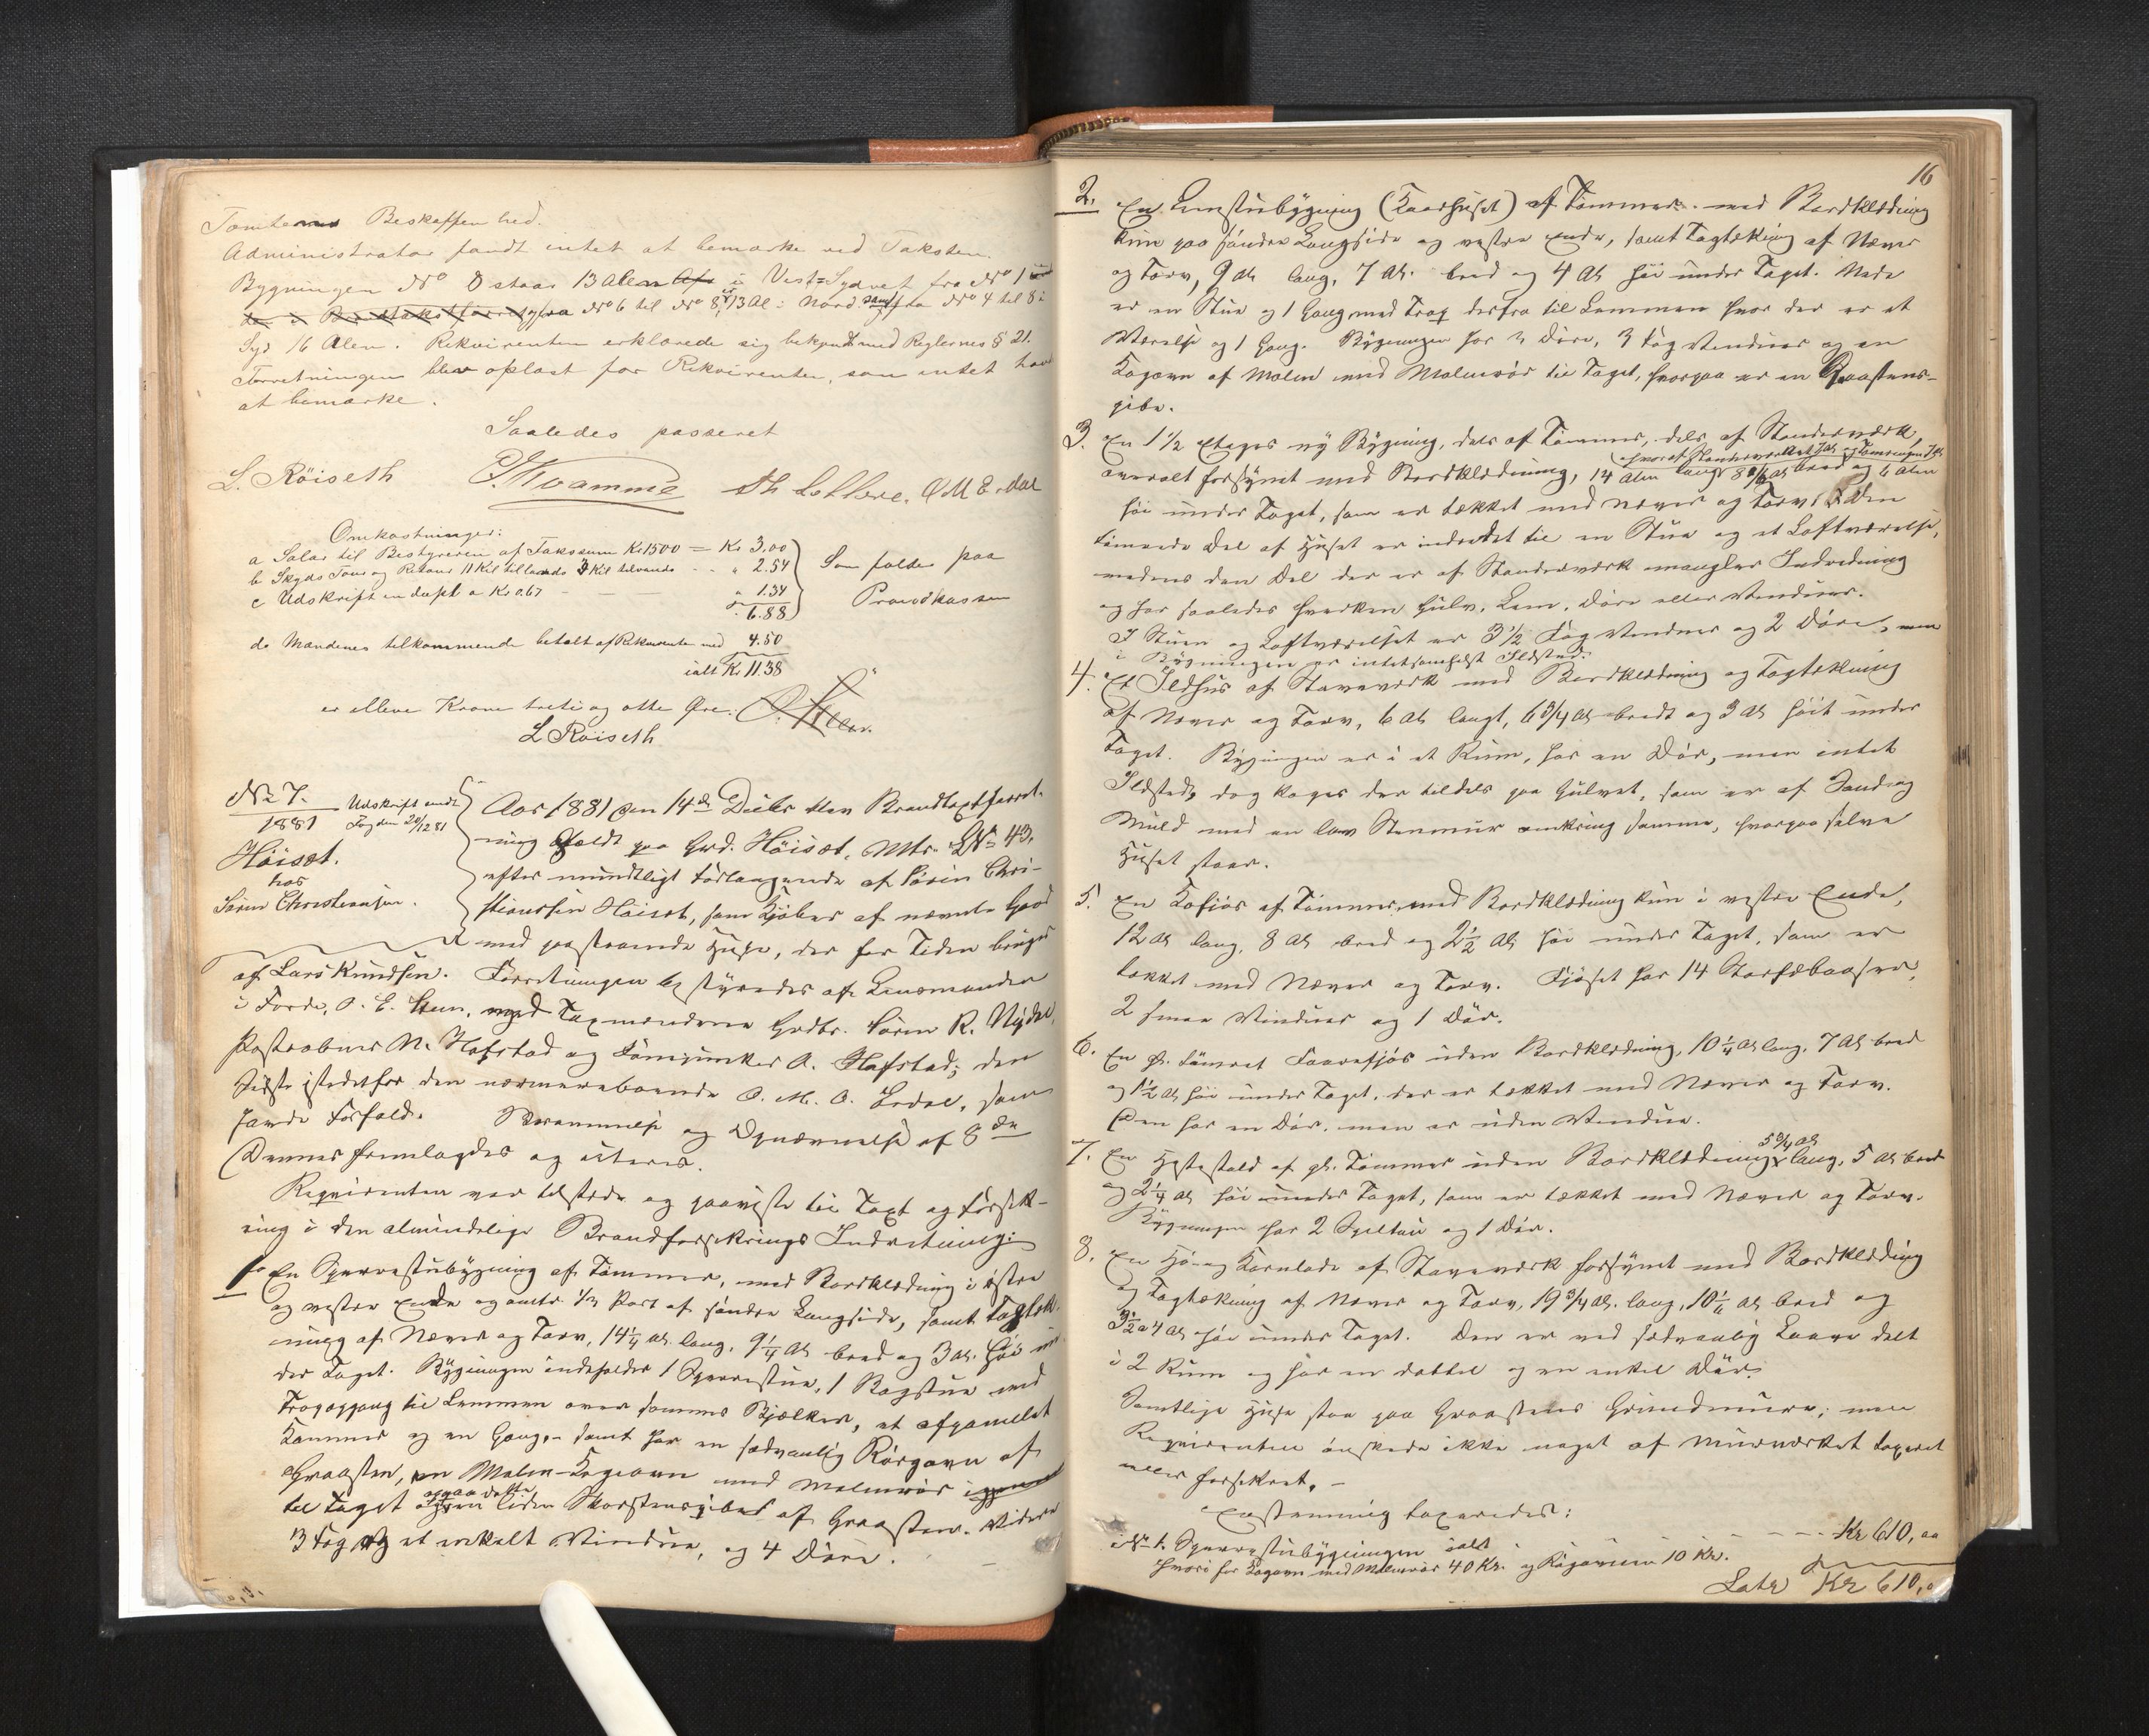 Tomternes Beskaffenhed.
Administrator fandt intet at bemærke ved Taksten.
Bygningen No 8 staar 13 Alen i Vest-Sydvest fra No 1
fra No 6 til No 8 er 13 Al: Nord samt fra No 4 til 8 i
Syd 16 Alen. Rekvirenten erklærede sig bekjendt med Reglernes § 21.
Forretningen blev oplæst for Rekvirenten, som intet havde
at bemærke.
Saaledes passeret
L. Röiseth Kvamme M E
Omkostninger:
a Salar til Bestyreren af Taksum Kr 1500 = Kr 3.00
b Skyds Tour og Retour 11 Kil tillands 3 Kil tilvands " 2.54
c Udskrift en dupl a Kr 0.67 " 1.34
6.88
Som falder paa
Brandkassen
do Mændenes tilkommende betalt af Rekvirenten med 4.50
ialt Kr 11.38
er elleve Kroner treti og otte Øre.
L Röiseth
No 7.
1881
Udskrift sendt
Fogden 20/12 81
Höiset.
hos
Sören Christensen.
Aar 1881 den 14de Decbr blev Brandtaxtforret-
ning afholdt paa Grd. Höiset, Mtr. No 43,
efter mundtligt Forlangende af Sören Chri-
stiansen Höiset, som Kjöber af nævnte Gaard
med paastaaende Huse, der for Tiden bruges
af Lars Knudsen. Forretningen bestyredes af Lensmanden
i Förde, med Taxmændene Grdbr. Sören R.
Postaabner N. Hafstad og A. Hafstad; den
sidste istedetfor den nærmereboende O. M. O. Erdal, som
havde Forfald. Berammelse og Opnævnelse af 8de
Dennes fremlagdes og citeres.
Requirenten var tilstede og paaviste til Taxt og Forsik-
ring i den almindelige Brandforsikrings Indretning:
1o En Sperrestubygning af Tömmer, med Bordklædning i östre
og vestre Ende og omtr. 1/3 Part af söndre Langside, samt Tagtæk-
ning af Næver og Torv, 14 1/4 Al. lang, 9 1/4 Al bred og 3 Al. höi un-
der Taget. Bygningen indeholder 1 Sperrestue, 1 Bagstue med
Trapopgang til Lemmen over sammes Bjælker, et afpanelet
Kammer og en Gang, samt har en sædvanlig Rögovn af
Graasten, en Malm-Kogeovn med Malmrör
til Taget og paa dette en liden Skorstenspibe af Graasten. Videre
3 Fag og et enkelt Vindue, og 4 Döre.
16
2. En Lemstubygning (Kaarhuset) af Tömmer med Bordklædning
kun paa söndre Langside og vestre Ende, samt Tagtækning af Næver
og Torv, 9 Al lang, 7 Al. bred og 4 Al höi under Taget. Nede
er en Stue og 1 Gang med Trap derfra til Lemmen hvor der er et
Værelse og 1 Gang. Bygningen har 3 Döre, 3 Fag Vinduer og en
Kogovn af Malm med Malmrör til Taget, hvorpaa er en Graastens-
pibe.
3. En 1 1/2 Etages ny Bygning, dels af Tömmer, dels af Stenderværk,
overalt forsynet med Bordklædning, 14 Alen lang, 8 1/2 Al bred og 6 Alen
höi under Taget, som er tækket med Næver og Torv. Den
tömrede Del af Huset er indredet til en Stue og et Loftværelse,
medens den Del der er af Stenderværk mangler Indredning
og har saaledes hverken Gulv, Lem, Döre eller Vinduer.
I Stuen og Loftværelset er 3 1/2 Fag Vinduer og 2 Döre, men
i Bygningen er intetsomhelst Ildsted.
4. Et Ildhus af Staveværk med Bordklædning og Tagtækning
af Næver og Torv, 6 Al langt, 6 3/4 Al bredt og 3 Al höit under
Taget. Bygningen er i et Rum, har en Dör, men intet
Ildsted, dog koges der tildels paa Gulvet, som er af Sand og
Muld med en lav Stenmur omkring samme, hvorpaa selve
Huset staar.
5. En Kofjös af Tömmer, med Bordklædning kun i vestre Ende,
12 Al lang, 8 Al bred og 2 1/2 Al höi under Taget, som er
tækket med Næver og Torv. Fjöset har 14 Storfæbaaser,
2 smaa Vinduer og 1 Dör.
6. En gl. tömret Faarefjös uden Bordklædning, 10 1/4 Al lang, 7 Al bred
og 1 1/2 Al höi under Taget, der er tækket med Næver og Torv.
Den har en Dör, men er uden Vindue.
7. En Hestestald af gl. Tömmer uden Bordklædning 5 3/4 Al lang, 5 Al bred
og 2 1/4 Al höi under Taget, som er tækket med Næver og Torv.
Bygningen har 2 Spiltau og 1 Dör.
8. En Hö- og Kornlade af Staveværk forsynet med Bordklædning
og Tagtækning af Næver og Torv, 19 3/4 Al. lang, 10 1/4 Al bred og
3 1/2 a 4 Al höi under Taget. Den er ved sædvanlig Laave delt
i 2 Rum og har en dobbel og en enkel Dör.
Samtlige Huse staa paa Graastens Grundmure; men
Requirenten önskede ikke noget af Murværket taxeret
eller forsikret. –
Enstemmig taxeredes:
No 1. Sperrestubygningen ialt - - - - Kr 610,00
hvori for Kogovn med Malmrör 40 Kr. og Rögovnen 10 Kr.
Latr Kr 610,